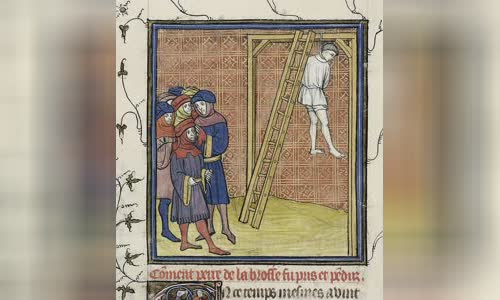 Cōment pierre de la broſſe fu pris et pēdu.
n ce temps meſmes auint